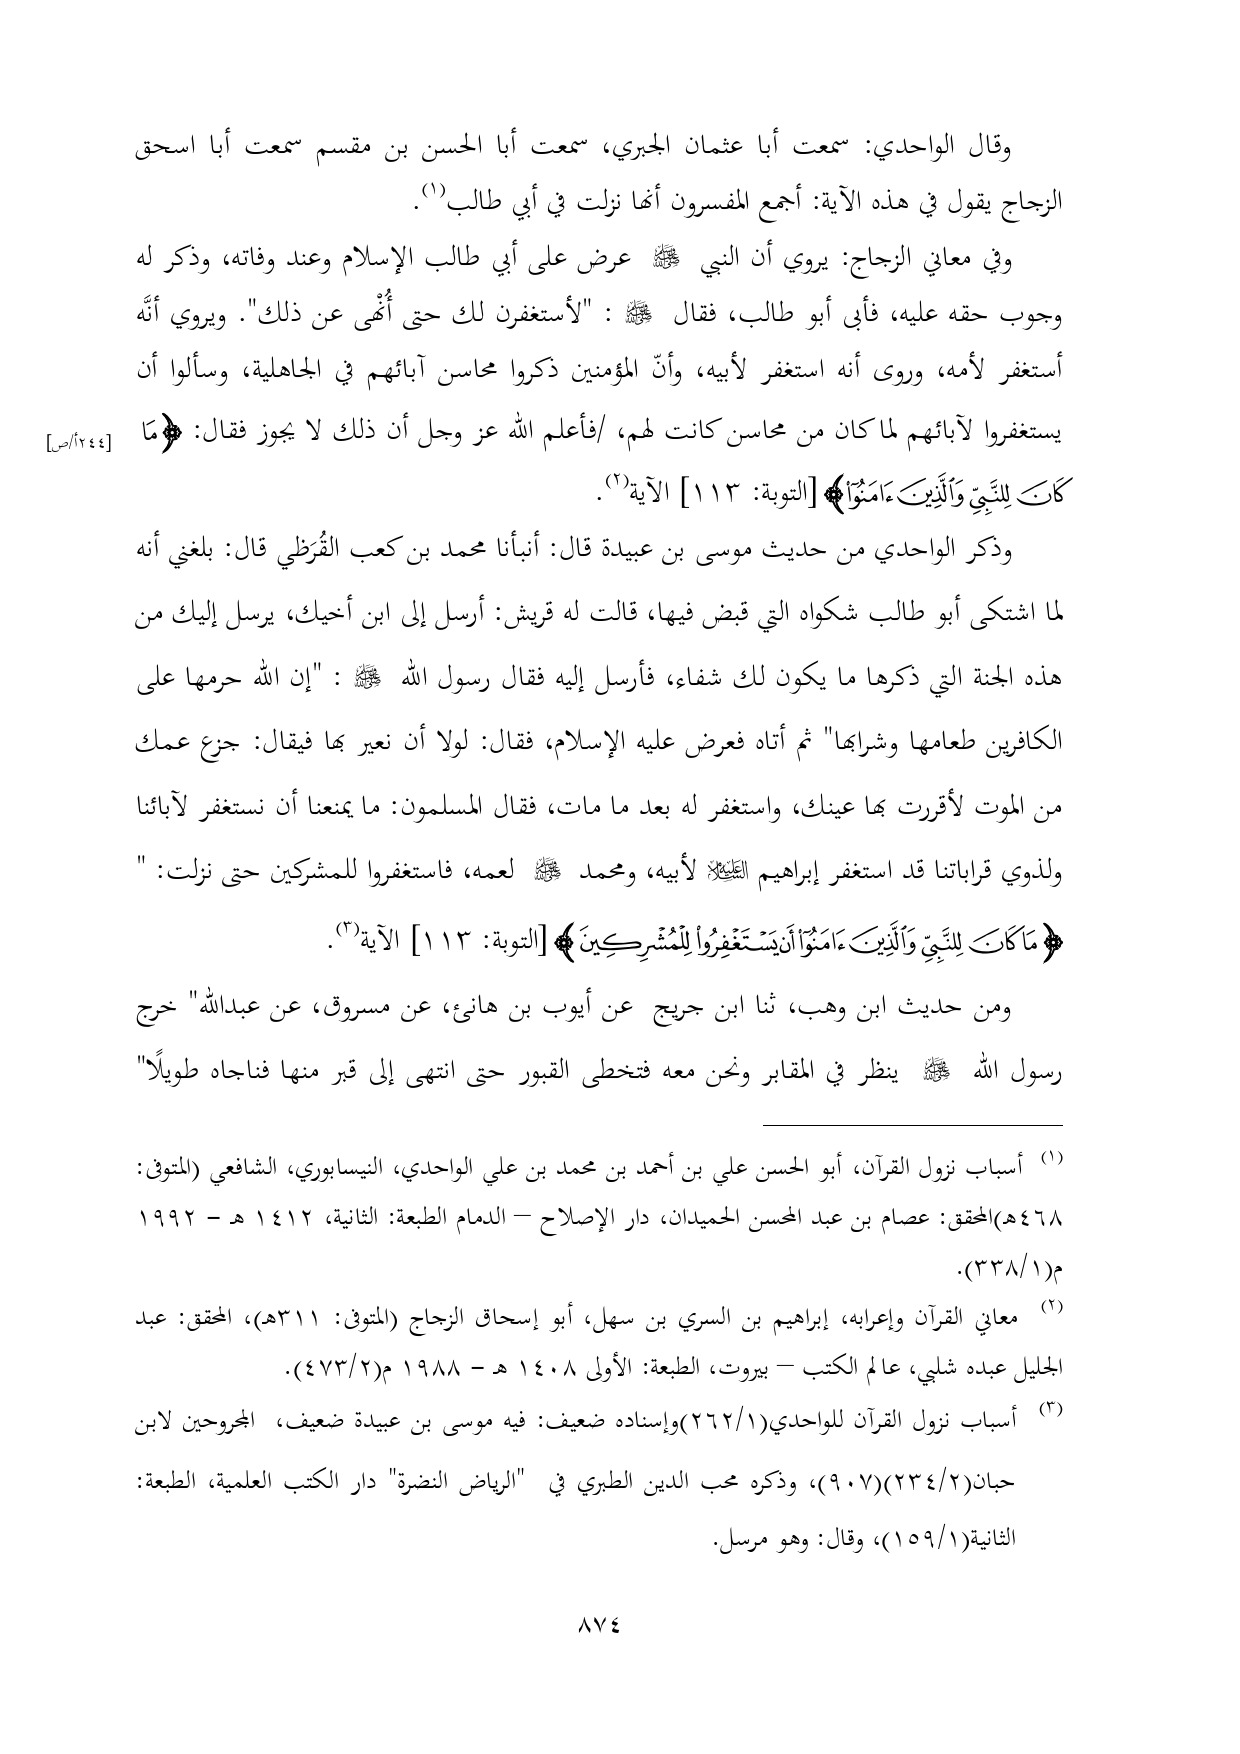 وقال الواحدي: سمعت أبا عثمان الجبري، سمعت أبا الحسن بن مقسم سمعت أبا اسحق
الزجاج يقول في هذه الآية: أجمع المفسرون أنها نزلت في أبي طالب(١).
وفي معاني الزجاج: يروي أن النبي ﷺ عرض على أبي طالب الإسلام وعند وفاته، وذكر له
وجوب حقه عليه، فأبى أبو طالب، فقال ﷺ : "لأستغفرن لك حتى أُنْهى عن ذلك". ويروي أنَّه
أستغفر لأمه، وروى أنه استغفر لأبيه، وأنّ المؤمنين ذكروا محاسن آبائهم في الجاهلية، وسألوا أن
يستغفروا لآبائهم لما كان من محاسن كانت لهم، /فأعلم الله عز وجل أن ذلك لا يجوز فقال: ﴿مَا
[٢٤٤أ/ص]
كَانَ لِلنَّبِيِّ وَٱلَّذِينَ ءَامَنُوٓاْ﴾ [التوبة: ١١٣] الآية(٢).
وذكر الواحدي من حديث موسى بن عبيدة قال: أنبأنا محمد بن كعب القُرَظي قال: بلغني أنه
لما اشتكى أبو طالب شكواه التي قبض فيها، قالت له قريش: أرسل إلى ابن أخيك، يرسل إليك من
هذه الجنة التي ذكرها ما يكون لك شفاء، فأرسل إليه فقال رسول الله ﷺ : "إن الله حرمها على
الكافرين طعامها وشرابها" ثم أتاه فعرض عليه الإسلام، فقال: لولا أن نعير بها فيقال: جزع عمك
من الموت لأقررت بها عينك، واستغفر له بعد ما مات، فقال المسلمون: ما يمنعنا أن نستغفر لآبائنا
ولذوي قراباتنا قد استغفر إبراهيم عليه السلام لأبيه، ومحمد ﷺ لعمه، فاستغفروا للمشركين حتى نزلت: "
﴿مَا كَانَ لِلنَّبِيِّ وَٱلَّذِينَ ءَامَنُوٓاْ أَن يَسۡتَغۡفِرُواْ لِلۡمُشۡرِكِينَ﴾ [التوبة: ١١٣] الآية(٣).
ومن حديث ابن وهب، ثنا ابن جريج عن أيوب بن هانئ، عن مسروق، عن عبدالله" خرج
رسول الله ﷺ ينظر في المقابر ونحن معه فتخطى القبور حتى انتهى إلى قبر منها فناجاه طويلًا"
(١) أسباب نزول القرآن، أبو الحسن علي بن أحمد بن محمد بن علي الواحدي، النيسابوري، الشافعي (المتوفى:
٤٦٨هـ)المحقق: عصام بن عبد المحسن الحميدان، دار الإصلاح – الدمام الطبعة: الثانية، ١٤١٢ هـ - ١٩٩٢
م(٣٣٨/١).
(٢) معاني القرآن وإعرابه، إبراهيم بن السري بن سهل، أبو إسحاق الزجاج (المتوفى: ٣١١هـ)، المحقق: عبد
الجليل عبده شلبي، عالم الكتب – بيروت، الطبعة: الأولى ١٤٠٨ هـ - ١٩٨٨ م(٤٧٣/٢).
(٣) أسباب نزول القرآن للواحدي(٢٦٢/١)وإسناده ضعيف: فيه موسى بن عبيدة ضعيف، المجروحين لابن
حبان(٢٣٤/٢)(٩٠٧)، وذكره محب الدين الطبري في "الرياض النضرة" دار الكتب العلمية، الطبعة:
الثانية(١٥٩/١)، وقال: وهو مرسل.
٨٧٤